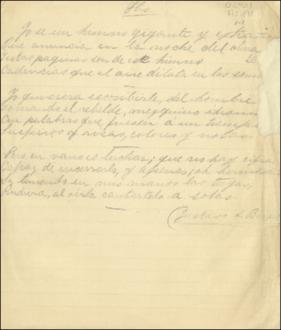 Yo sé un himno gigante y extraño
que anuncia en la noche del alma
y estas paginas son de ese himno
Cadencias que el aire dilata en las som
Yo quisiera escribirle, del hombre
domando el rebelde, mezquino idioma
Con palabras que fuesen a un tiempo
suspiros y risas, colores y notas
Pero en vano es luchar; que no hay cifra
Capaz de encerrarlo, y apenas ¡oh hermosa!
Si teniendo en mis manos las tuyas
Pudiera, al oído cantártelo a solas
Gustavo A